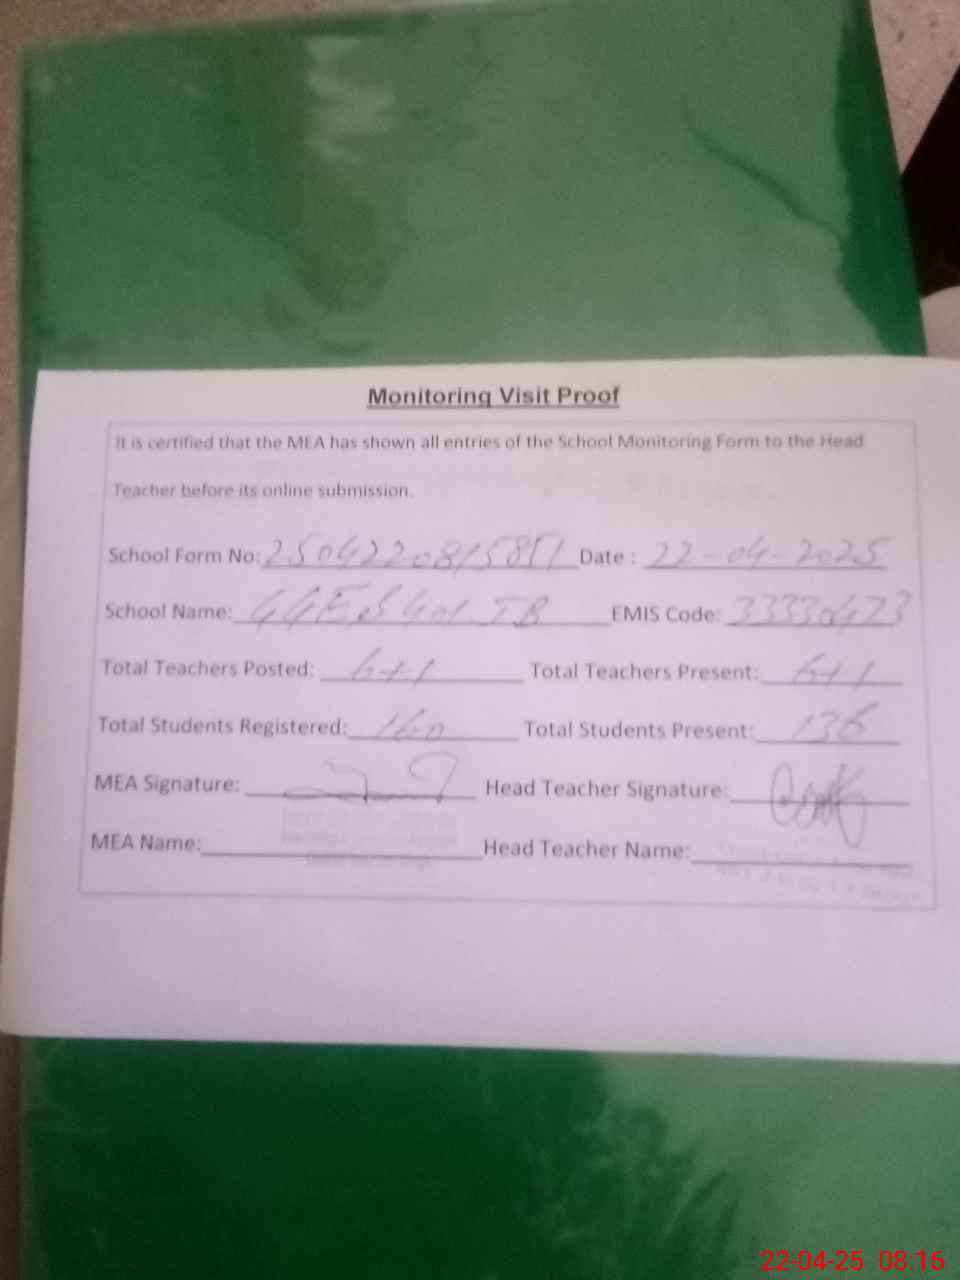 Monitoring Visit Proof
It is certified that the MEA has shown all entries of the School Monitoring Form to the Head
Teacher before its online submission.
School Form No: Date : 22-04-2025
School Name: GGES 401 JB EMIS Code: 33330473
Total Teachers Posted: 6+1 Total Teachers Present: 6+1
Total Students Registered: 160 Total Students Present: 136
MEA Signature: Head Teacher Signature:
MEA Name: Head Teacher Name:
22-04-25 08:16